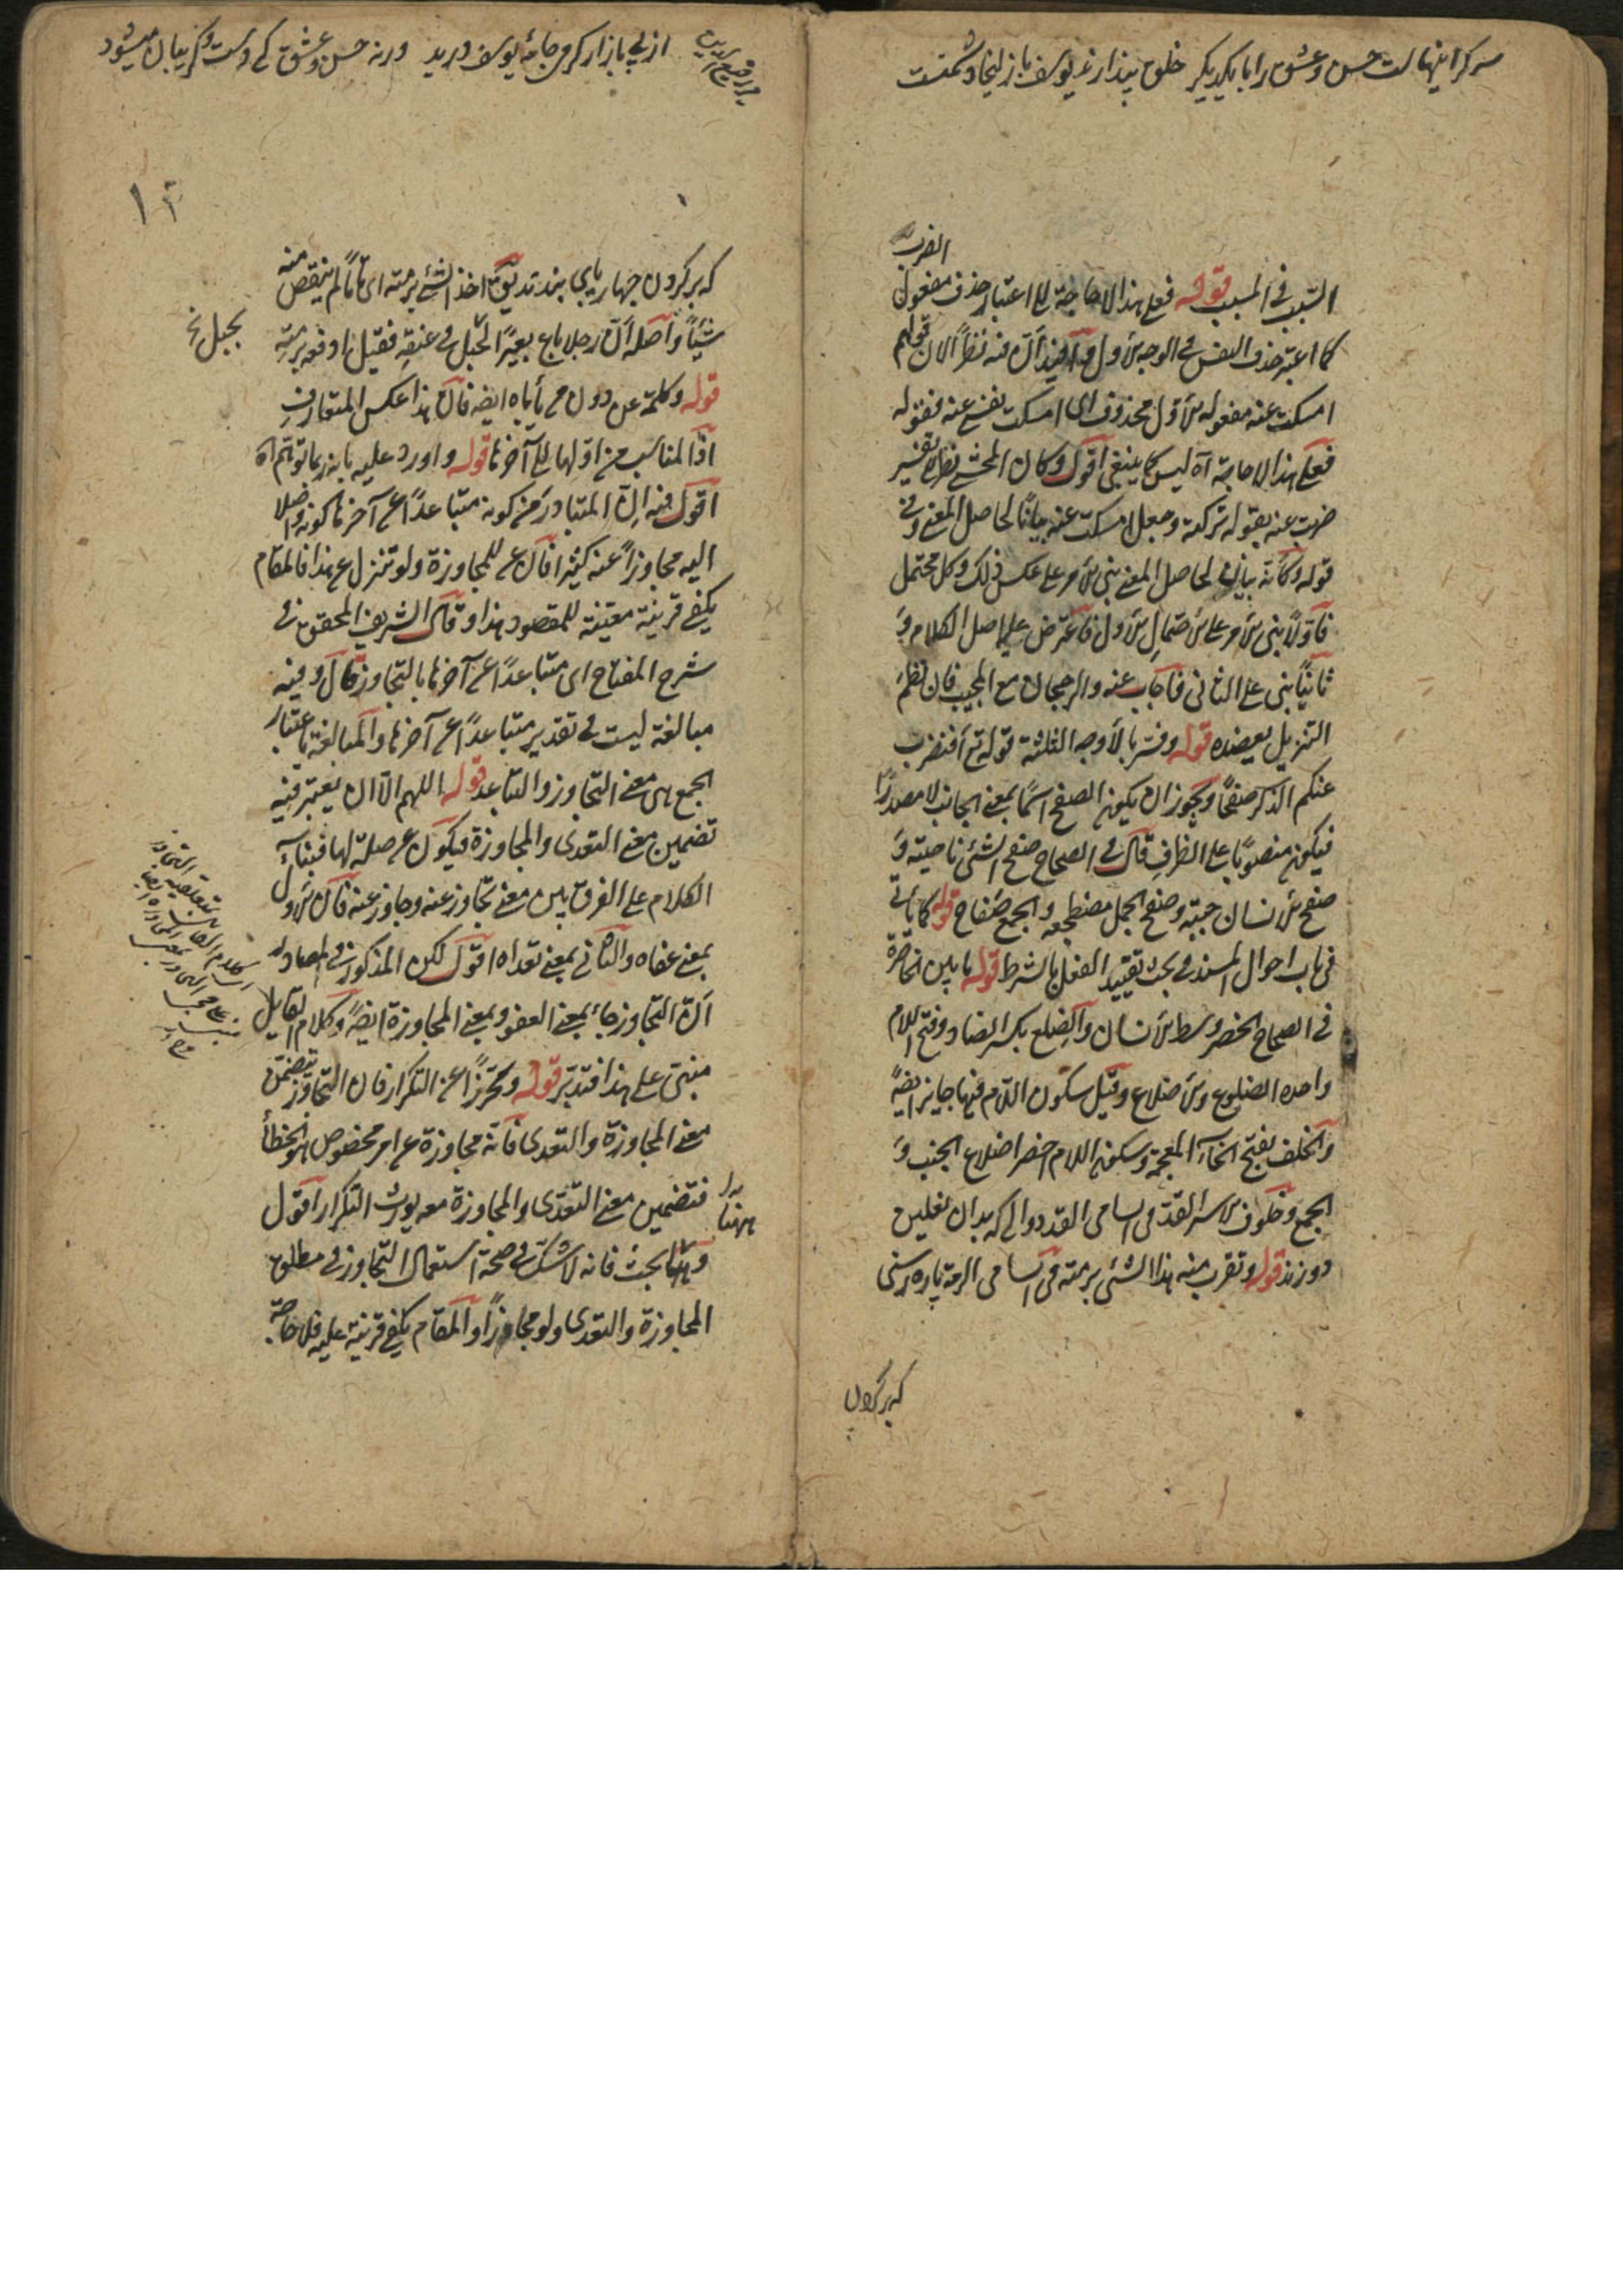 سر کراینهاست حسن و عشق را با یکدیگر خلق پندارند یوسف با زلیخا دشمنست
الضرب
السبب فی المسبب قوله فعلی هذا لا حاجة الی اعتبار حذف مفعول
کما اعتبر حذف النفس فی الوجه الاول اقول فیه نظر لان قولهم
امسکت عنه مفعوله الاول محذوف ای امسکت نفسی عنه فقوله
فعلی هذا لا حاجة آه لیس کما ینبغی اقول وکان المحشی نظر الی تفسیر
ضربت عنه بقوله ترکته وجعل امسکت عنه بیانا لحاصل المعنی وفی
قوله وکأنه بیان لحاصل المعنی بنی الامر علی عکس ذلک وکل محتمل
فاولا بنی الامر علی الاحتمال الاول فاعترض علی اصل الکلام و
ثانیا بنی علی الثانی فاجاب عنه والرجحان مع المجیب فان نظم
التنزیل یعضده قوله وفسر بالاوجه الثلثة قوله تع افنضرب
عنکم الذکر صفحا ویجوز ان یکون الصفح اسما بمعنی الجانب لا مصدرا
فیکون منصوبا علی الظرف قال فی الصحاح صفح الشئ ناحیته و
صفح الانسان جنبه وصفح الجبل مضطجعه والجمع صفاح قوله کما یأتی
فی باب احوال المسند فی بحث تقیید الفعل بالشرط قوله ما بین الخاصرة
فی الصحاح الخصر وسط الانسان والضلع بکسر الضاد وفتح اللام
واحده الضلوع والاضلاع وقیل سکون اللام فیها جایز ایضا
والخلف بفتح الخاء المعجمة وسکون اللام اخصر اضلاع الجنب و
الجمع وخلوف الاسر القد فی السامی القد دوالی که بدان نعلین
دوزند قوله وتقرب منه هذا الشئ برمته فی السامی الرمة پاره رسنی
که بر گردن
از پی بازار گرمی جامۀ یوسف درید ورنه حسن و عشق کے دست و گریبان میشود
میر رفیع الدین
۱۳
که بر گردن چهارپای بندند یق اخذ الشئ برمته ای تاما لم ینقص منه
شیئا واصله ان رجلا باع بعیرا الحبل فی عنقه فقیل ادفعه برمته
بحبل نخ
قوله وکلمة عن دون من یأباه ایضا فان هذا عکس المتعارف
اذ المناسب من اولها الی آخرها قوله واورد علیه بانه ربما توهم آه
اقول فیه ان المتبادر من کونه متباعدا عن آخرها کونه واصلا
الیه مجاوزا عنه کثیرا فان عن للمجاوزة ولو تنزل عن هذا فالمقام
یکفی قرینة معینة للمقصود هذا وقال الشریف المحقق فی
شرح المفتاح ای متباعدا عن آخرها بالتجاوز قال وفیه
مبالغة لیست فی تقدیر متباعدا عن آخرها والمبالغة باعتبار
الجمع بین معنی التجاوز والتباعد قوله اللهم الا ان یعتبر فیه
تضمین معنی التعدی والمجاوزة فیکون عن صلة لها فبناء
الکلام علی الفرق بین معنی تجاوز عنه وجاوز عنه فان الاول
بمعنی عفاه والثانی بمعنی تعداه اقول لکن المذکور فی المصادر
ان التجاوز جاء بمعنی العفو وبمعنی المجاوزة ایضا وکلام القایل
مبنی علی هذا فتدبر قوله وتحرزا عن التکرار فان التجاوز یتضمن
معنی المجاوزة والتعدی فانه مجاوزة عن امر مخصوص هو الخطأ
فتضمین معنی التعدی والمجاوزة معه یورث التکرار اقول
وههنا بحث فانه لا شک فی صحة استعمال التجاوز فی مطلق
المجاوزة والتعدی ولو مجازا والمقام یکفی قرینة علیه فلا حاجة